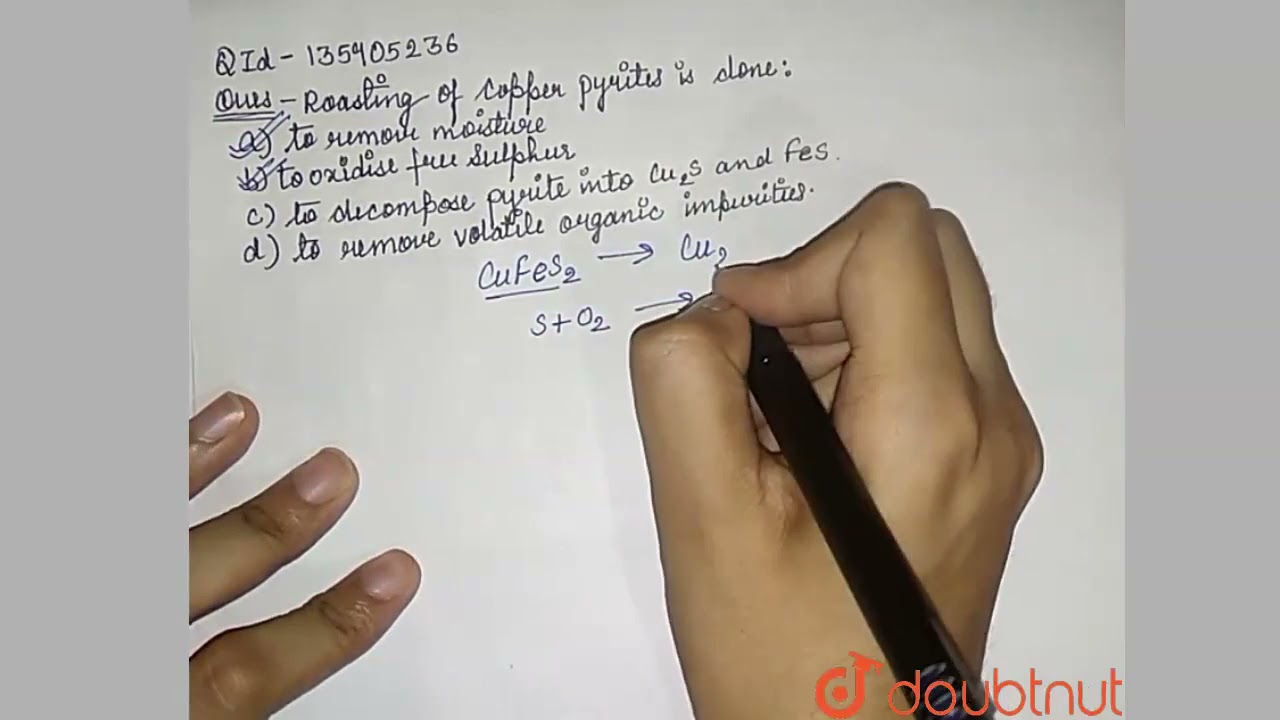 QId - 135905236
Ques - Roasting of copper pyrites is done:
a) to remove moisture
b) to oxidise free sulphur
c) to decompose pyrite into Cu2S and FeS.
d) to remove volatile organic impurities.
CuFeS2 → Cu2
S + O2 →
doubtnut